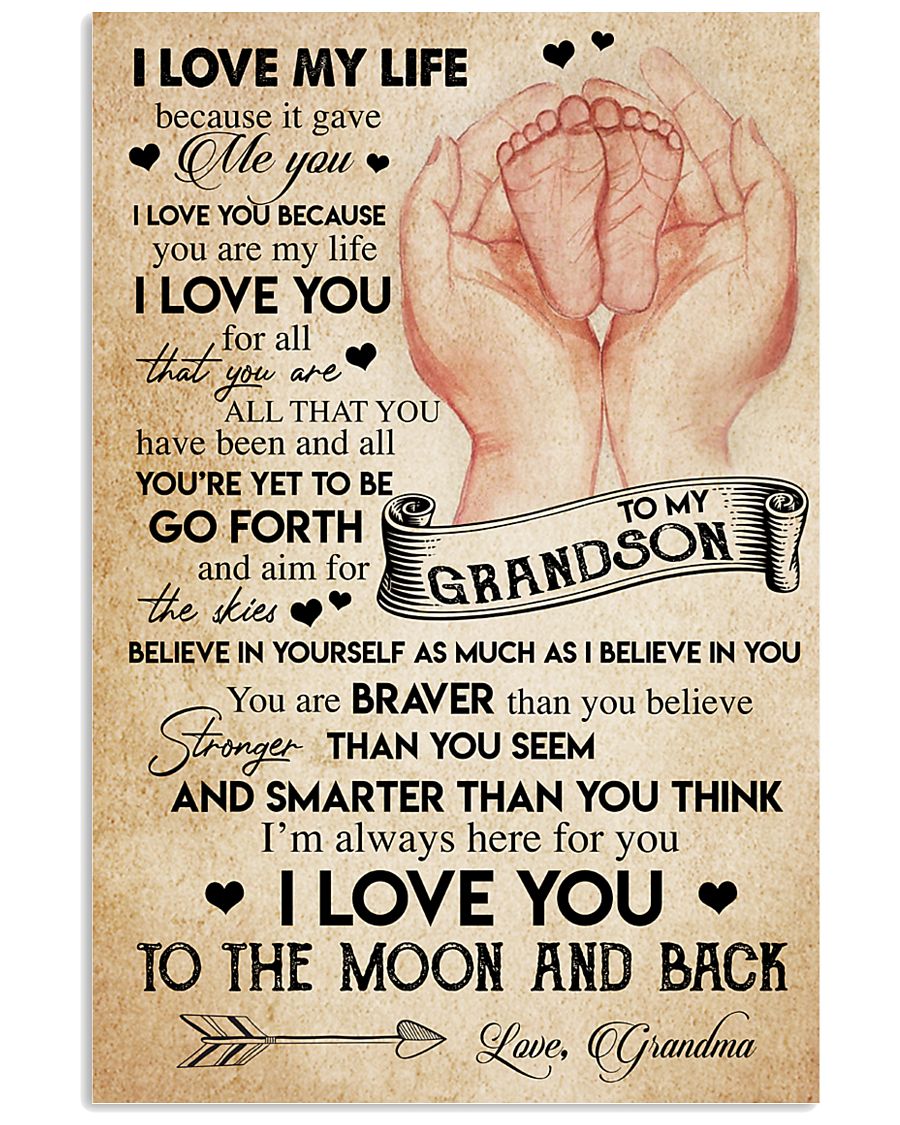 I LOVE MY LIFE
because it gave
Me you
I LOVE YOU BECAUSE
you are my life
I LOVE YOU
for all
that you are
ALL THAT YOU
have been and all
YOU'RE YET TO BE
GO FORTH
and aim for
the skies
TO MY
GRANDSON
BELIEVE IN YOURSELF AS MUCH AS I BELIEVE IN YOU
You are BRAVER than you believe
Stronger THAN YOU SEEM
AND SMARTER THAN YOU THINK
I'm always here for you
I LOVE YOU
TO THE MOON AND BACK
Love, Grandma